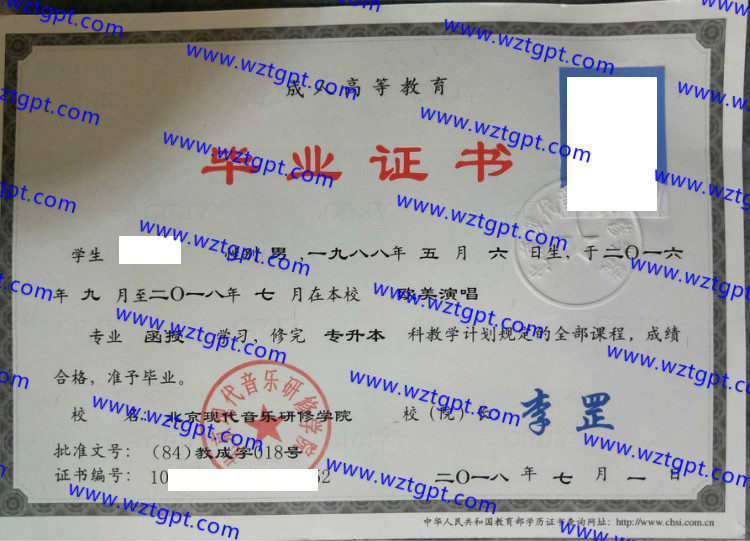 www.wztgpt.com
成人高等教育
毕业证书
学生 性别 男 ,一九八八年 五 月 六 日生, 于二〇一六
年 九 月至二〇一八年 七 月在本校 欧美演唱
专业 函授 学习, 修完 专升本 科教学计划规定的全部课程, 成绩
合格, 准予毕业。
校 名: 北京现代音乐研修学院 校(院)长 李罡
批准文号: (84)教成字018号
证书编号: 10 52
二〇一八 年 七 月 一 日
中华人民共和国教育部学历证书查询网址: http://www.chsi.com.cn